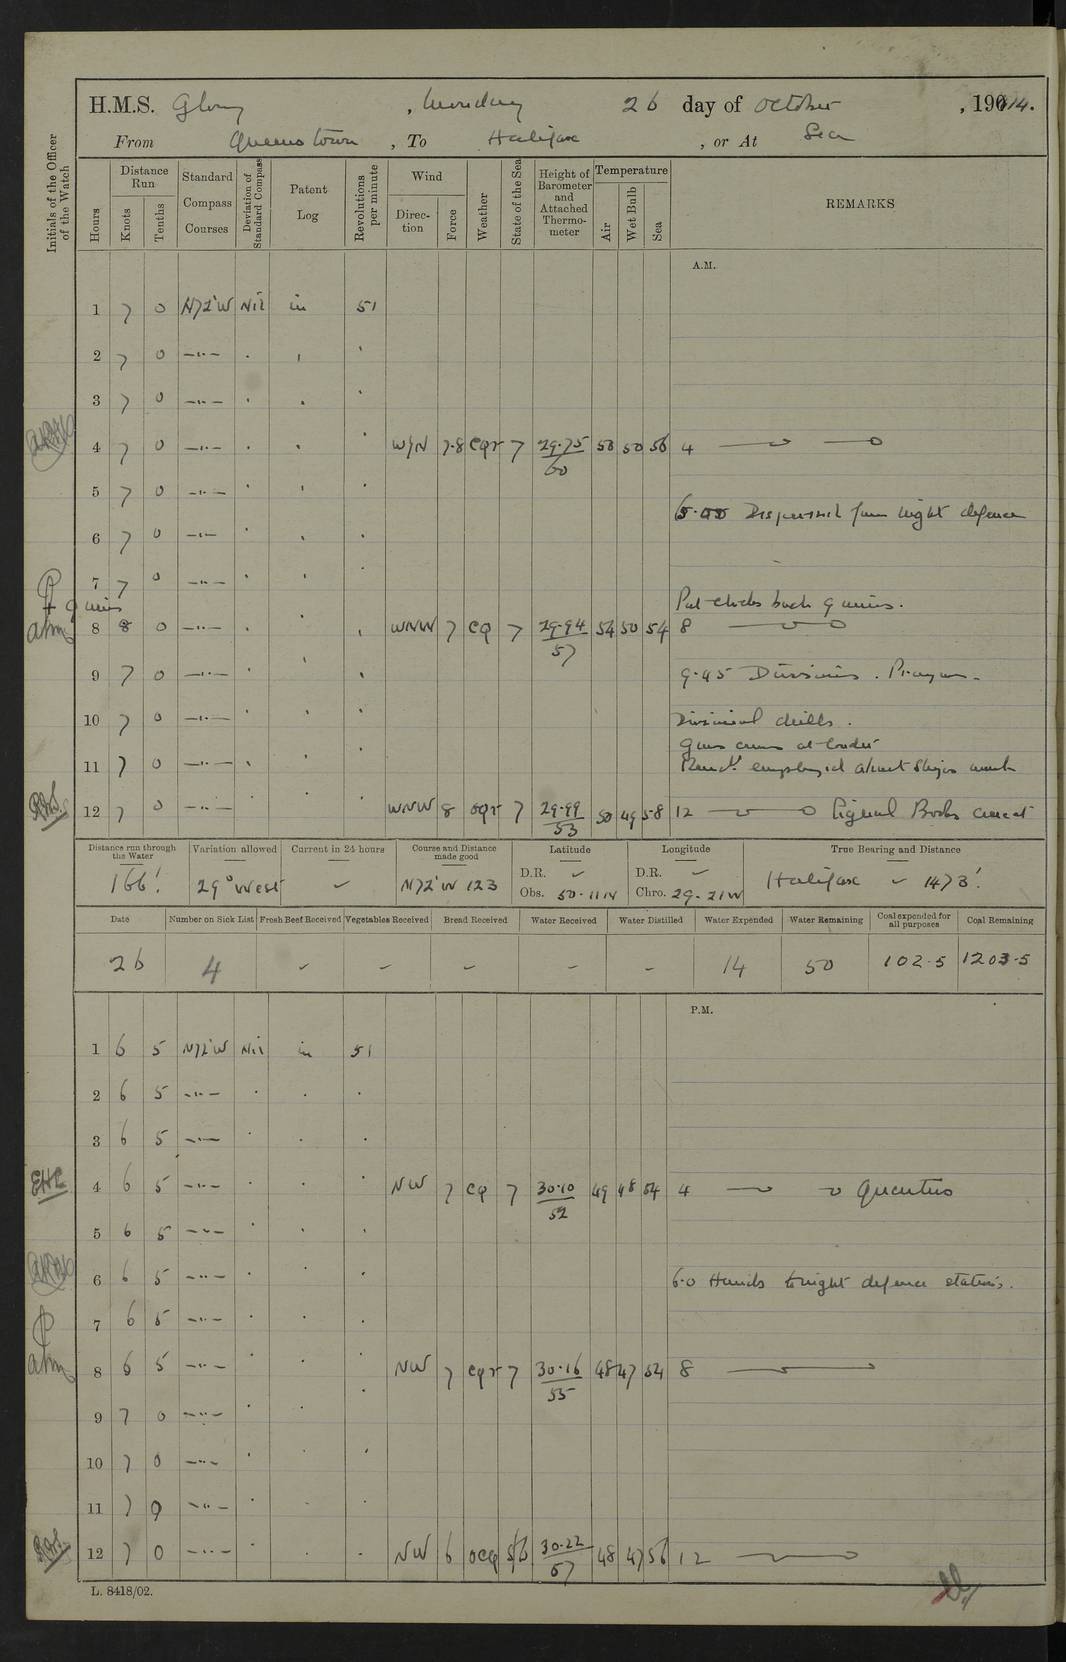 H.M.S. Glory, Monday 26 day of October, 1914.
From Queenstown, To Halifax, or At Sea
Initials of the Officer of the Watch
Hours
Distance Run
Knots Tenths
Standard Compass Courses
Deviation of Standard Compass
Patent Log
Revolutions per minute
Wind
Direction Force
Weather
State of the Sea
Height of Barometer and Attached Thermometer
Temperature
Air Wet Bulb Sea
REMARKS
A.M.
1 7 0 N72°W Nil in 51
2 7 0 —"— . . .
3 7 0 —"— . . .
4 7 0 —"— . . . W/N 7.8 cqr 7 29.75/60 50 50 56 4
5 7 0 —"— . . .
Dispersed from night defence
6 7 0 —"— . . .
7 7 0 —"— . . .
+ 9 mins
Put clocks back 9 mins.
8 8 0 —"— . . . WNW 7 cq 7 29.94/57 54 50 54 8
9 7 0 —"— . . . 9.45 Divisions. Prayers.
10 7 0 —"— . . . Divisional drills.
Guns crews at loader
11 7 0 —"— . . . Remdr employed about Ships work
12 7 0 —"— . . . WNW 8 oqr 7 29.99/53 50 49 58 12 Signal Books correct
Distance run through the Water 166'
Variation allowed 29° West
Current in 24 hours –
Course and Distance made good N72°W 123
Latitude D.R. – Obs. 50-11N
Longitude D.R. – Chro. 29-21W
True Bearing and Distance Halifax – 1473'
Date Number on Sick List Fresh Beef Received Vegetables Received Bread Received Water Received Water Distilled Water Expended Water Remaining Coal expended for all purposes Coal Remaining
26 4 – – – – – 14 50 102.5 1203.5
P.M.
1 6 5 N72°W Nil in 51
2 6 5 —"— . . .
3 6 5 —"— . . .
EHC
4 6 5 —"— . . . NW 7 cq 7 30.10/52 49 48 54 4 Quarters
5 6 5 —"— . . .
6 6 5 —"— . . . 6.0 Hands to night defence stations.
7 6 5 —"— . . .
8 6 5 —"— . . . NW 7 cqr 7 30.16/55 48 47 54 8
9 7 0 —"— . . .
10 7 0 —"— . . .
11 7 0 —"— . . .
12 7 0 —"— . . . NW 6 ocq 5/6 30.22/57 48 47 56 12
L. 8418/02.